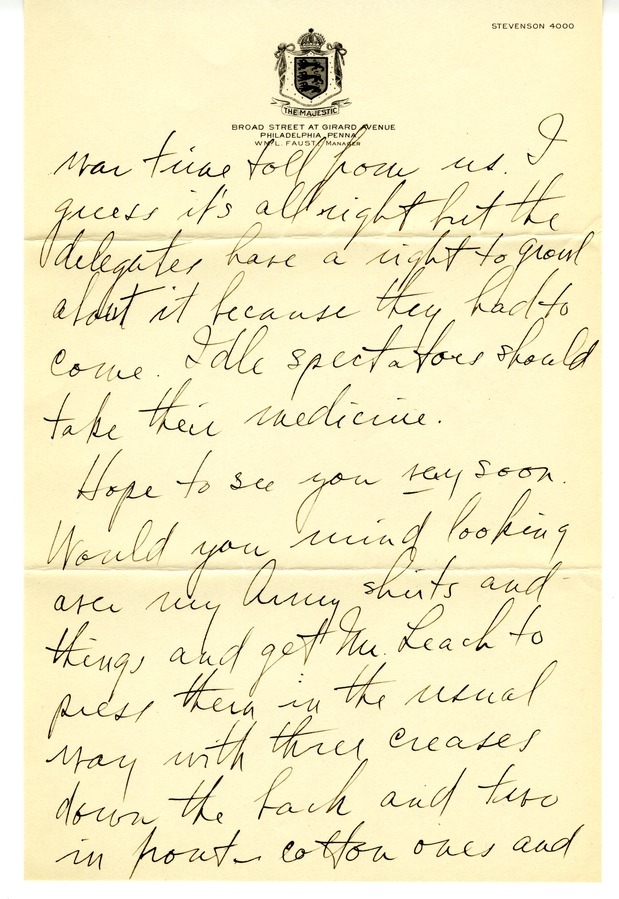 STEVENSON 4000
THE MAJESTIC
BROAD STREET AT GIRARD AVENUE
PHILADELPHIA, PENNA.
WM. L. FAUST, MANAGER
war time toll from us. I
guess it's all right but the
delegates have a right to growl
about it because they had to
come. Idle spectators should
take their medicine.
Hope to see you very soon.
Would you mind looking
over my Army shirts and
things and get Mr. Leach to
press them in the usual
way with three creases
down the back and two
in front - cotton ones and